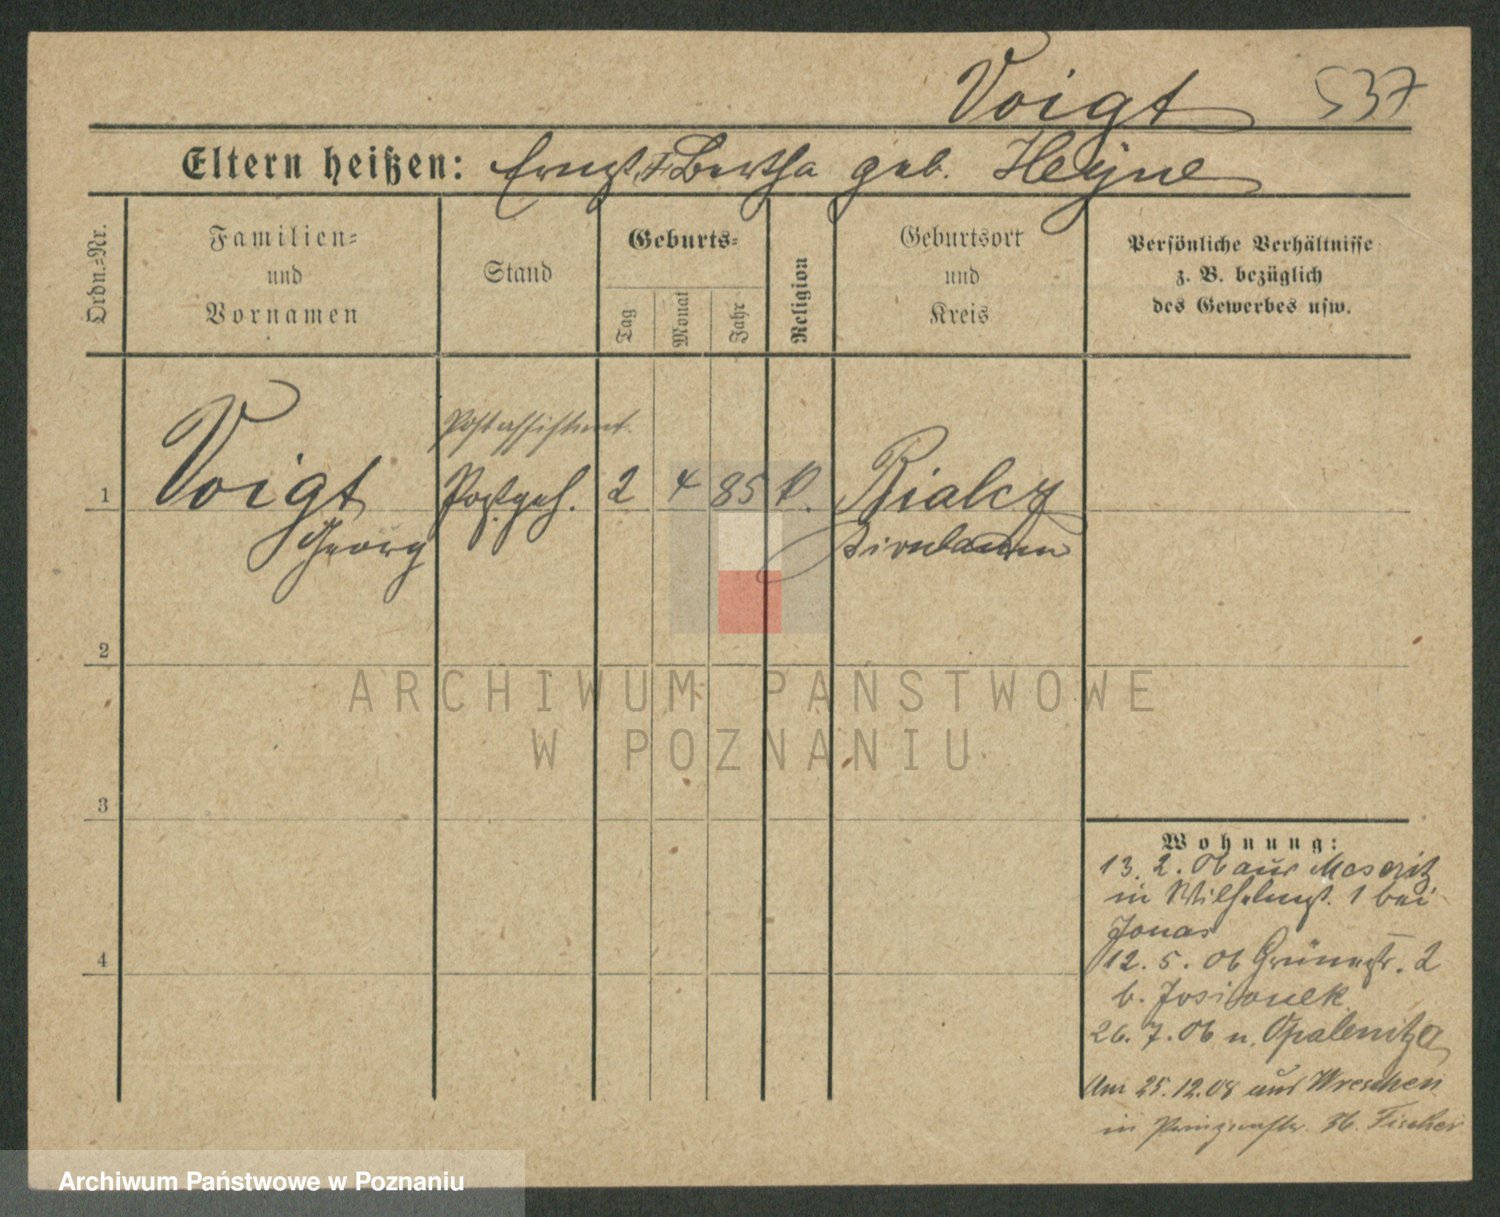 Voigt 537
Eltern heißen: Ernst, Bertha geb. Heyne
Ordn.-Nr.
Familien-
und
Vornamen
Stand
Geburts-
Tag
Monat
Jahr
Religion
Geburtsort
und
Kreis
Persönliche Verhältnisse
z. B. bezüglich
des Gewerbes usw.
Postassistent.
1 Voigt Postgeh. 2 4 85 k. Bialcz
Georg Birnbaum
2
ARCHIWUM PAŃSTWOWE
W POZNANIU
3
Wohnung:
13. 2. 06 aus Meseritz
in Wilhelmst. 1 bei
Jonas
4
12. 5. 06 Grünestr. 2
b.
26. 7. 06 n. Opalenitza
Am 25.12.08 aus Wreschen
in Prinzenstr. 36. Fischer
Archiwum Państwowe w Poznaniu